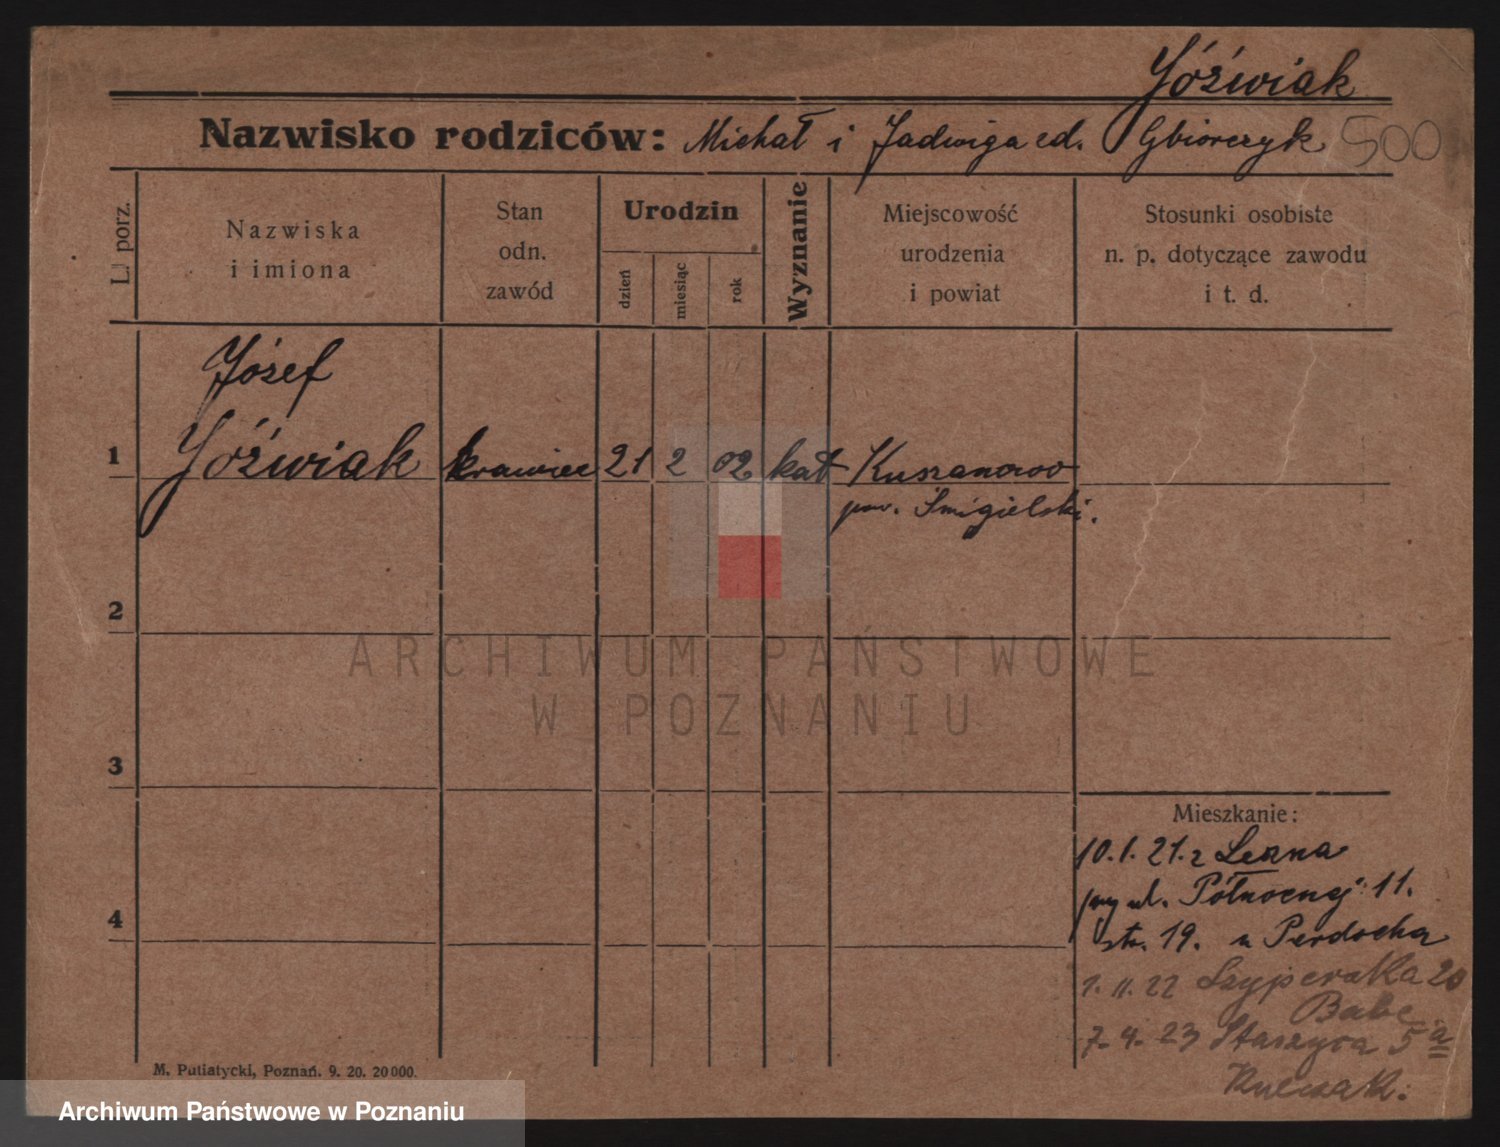 Jóźwiak
Nazwisko rodziców: Michał i Jadwiga zd. Gbiorczyk 500
L. porz.
Nazwiska
i imiona
Stan
odn.
zawód
Urodzin
dzień
miesiąc
rok
Wyznanie
Miejscowość
urodzenia
i powiat
Stosunki osobiste
n. p. dotyczące zawodu
i t. d.
Józef
1 Jóźwiak krawiec 21 2 02 kat Kuszanowo
pow. Śmigielski.
2
ARCHIWUM PAŃSTWOWE
W POZNANIU
3
Mieszkanie:
10.1.21. z Leszna
przy ul. Północnej 11.
4
str. 19. u Perdocha
1.11.22 Szyperska 20
Babe
7.4.23 Staszyca 5a
Kulczak.
M. Putiatycki, Poznań. 9. 20. 20000.
Archiwum Państwowe w Poznaniu